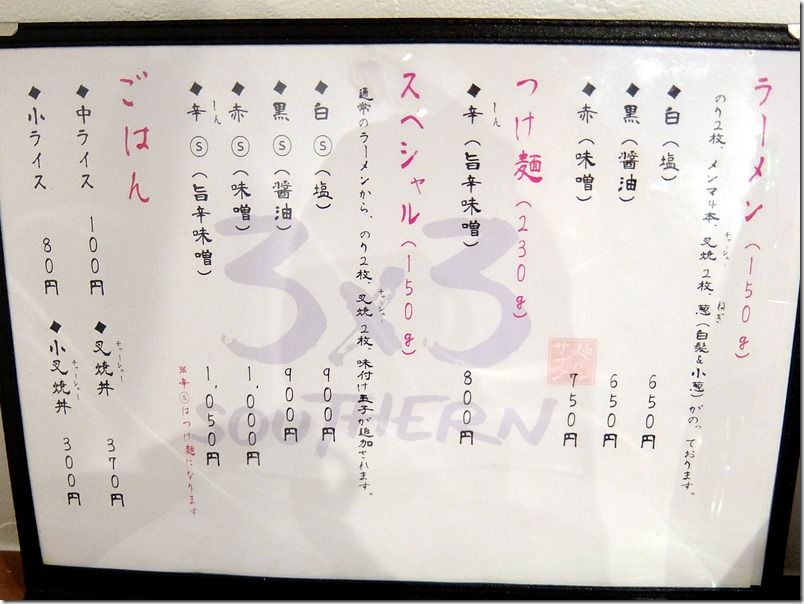 ラーメン(150g)
のり2枚、メンマ4本、叉焼2枚、葱(白髪&小葱)がのっております。
チャーシュー
ねぎ
◆白(塩) 650円
◆黒(醤油) 650円
◆赤(味噌) 750円
つけ麺(230g)
◆辛(旨辛味噌) 800円
しん
スペシャル(150g)
通常のラーメンから、のり2枚、叉焼2枚、味付け玉子が追加されます。
チャーシュー
◆白Ⓢ(塩) 900円
◆黒Ⓢ(醤油) 900円
◆赤Ⓢ(味噌) 1,000円
◆辛Ⓢ(旨辛味噌) 1,050円
しん
※辛Ⓢはつけ麺になります
ごはん
◆中ライス 100円
◆小ライス 80円
◆叉焼丼 370円
チャーシュー
◆小叉焼丼 300円
チャーシュー
3x3
SOUTHERN